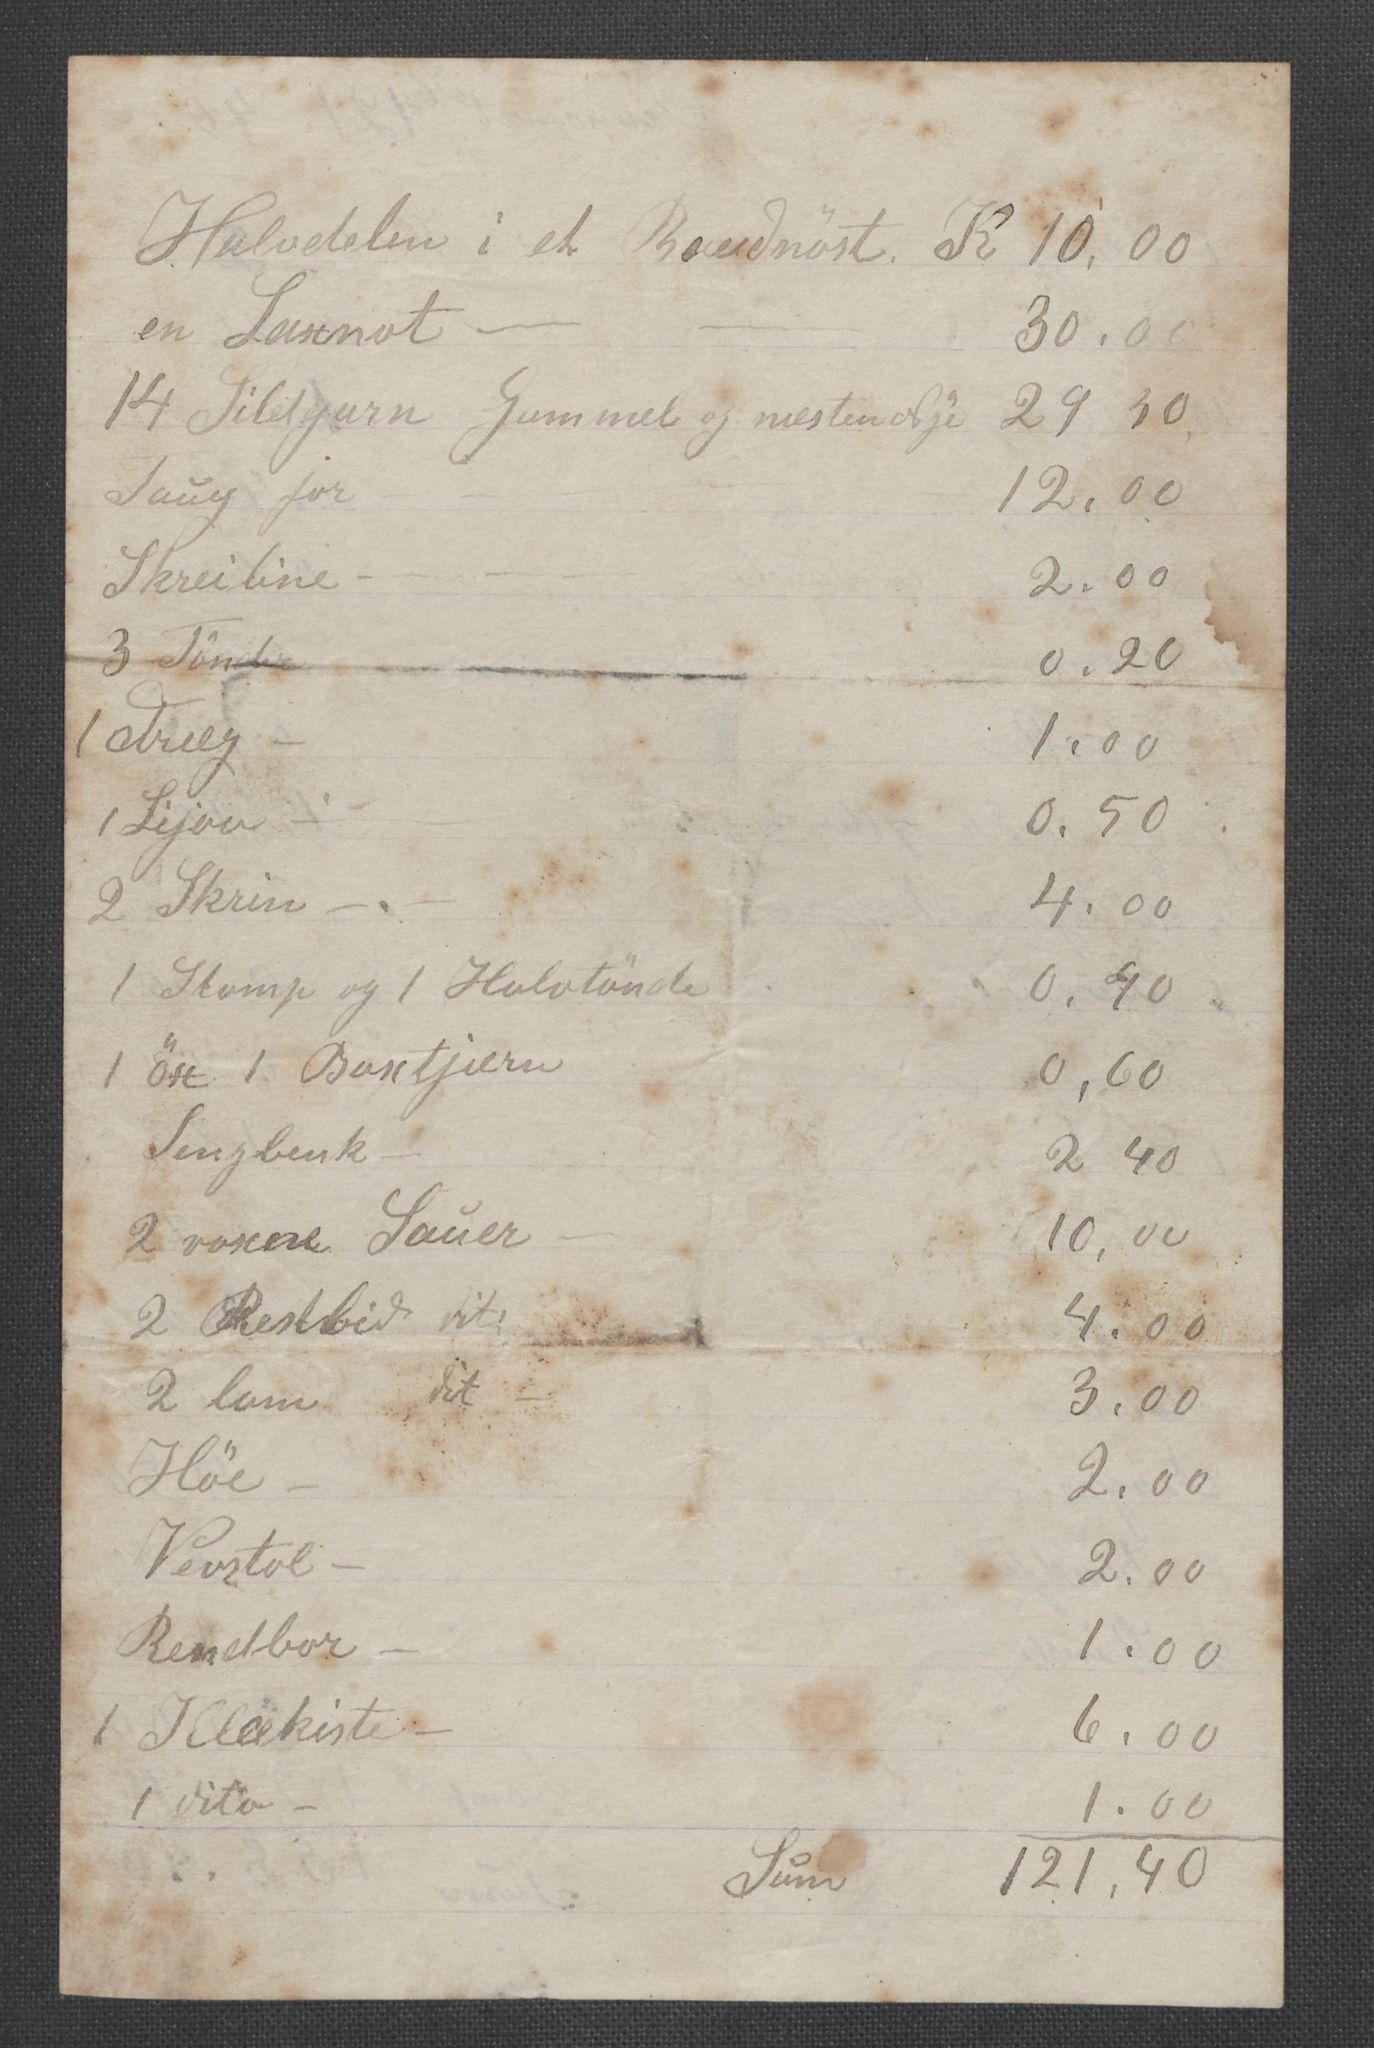 Halvdelen i et Baadnöst. K 10,00
en Laxnot — — 30.00
14 Sildgarn Gammel og nesten 29 30
Taug for - - - 12.00
Skreiline - - - 2.00
3 Tönder 0.20
1 Dræg - 1.00
1 Lijaa - 0.50
2 Skrin - . - 4.00
1 Stamp og 1 Halvtönde 0.40
1 öx 1 Baxtjærn 0,60
Sengbenk - 2 40
2 voxene Sauer - 10,00
2 dit: 4.00
2 lam dit - 3.00
Höe - 2.00
Vevstol - 2.00
Rendbor - 1.00
1 Klækiste - 6.00
1 dito - 1.00
Sum 121,40